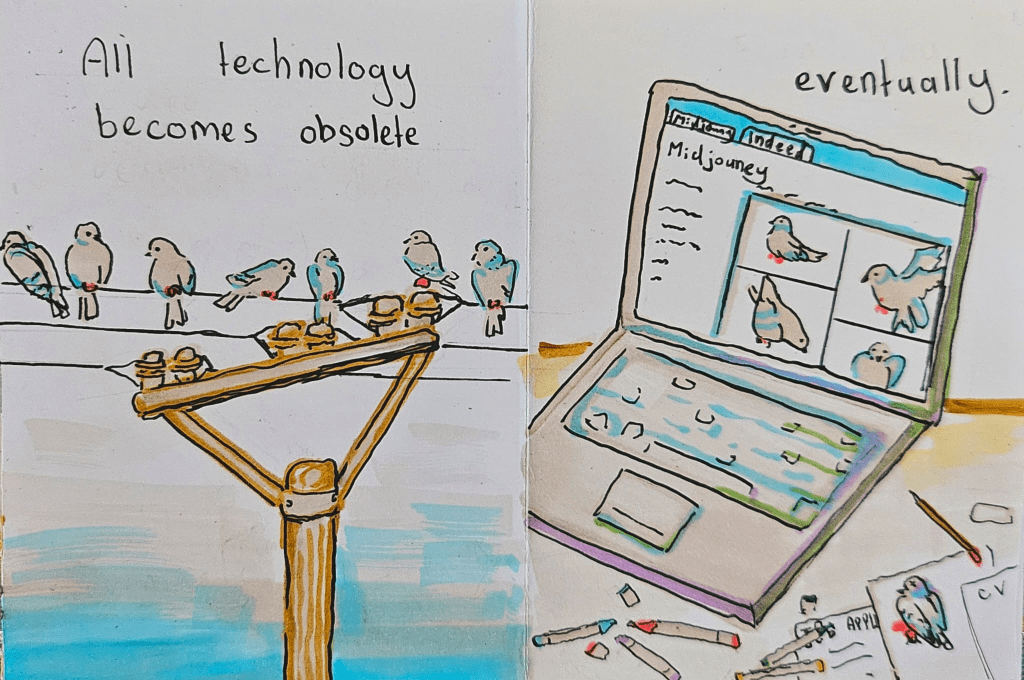 All technology
becomes obsolete
eventually.
Indeed
Midjouney
APPL
CV